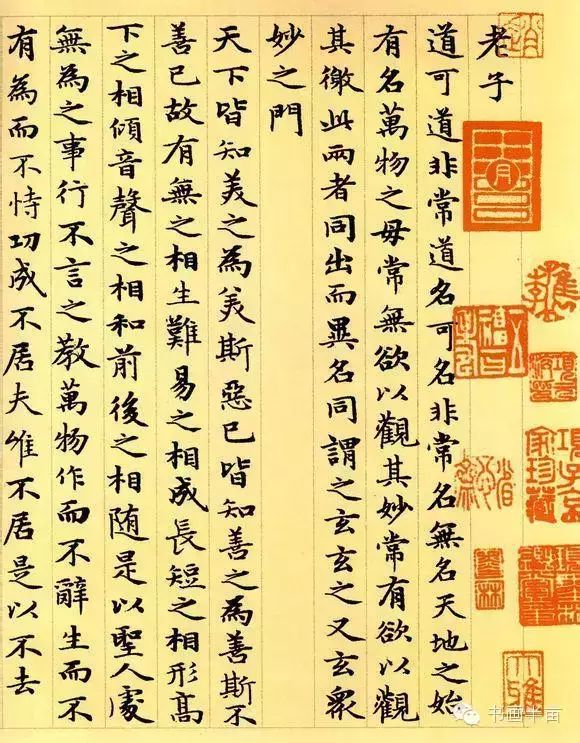 老子
道可道非常道名可名非常名無名天地之始
有名萬物之母常無欲以觀其妙常有欲以觀
其徼此兩者同出而異名同謂之玄玄之又玄眾
妙之門
天下皆知美之為美斯惡已皆知善之為善斯不
善已故有無之相生難易之相成長短之相形高
下之相傾音聲之相和前後之相随是以聖人處
無為之事行不言之教萬物作而不辭生而不
有為而不恃功成不居夫唯不居是以不去
項子京
家珍藏
书画半亩